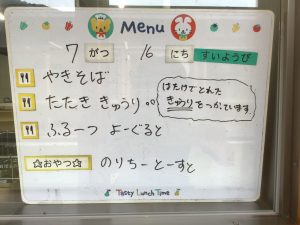 Menu
7 がつ 16 にち すいようび
やきそば
たたききゅうり
はたけでとれた
きゅうりをつかています。
ふるーつ よーぐると
☆おやつ☆ のりちーとーすと
Tasty Lunch Time